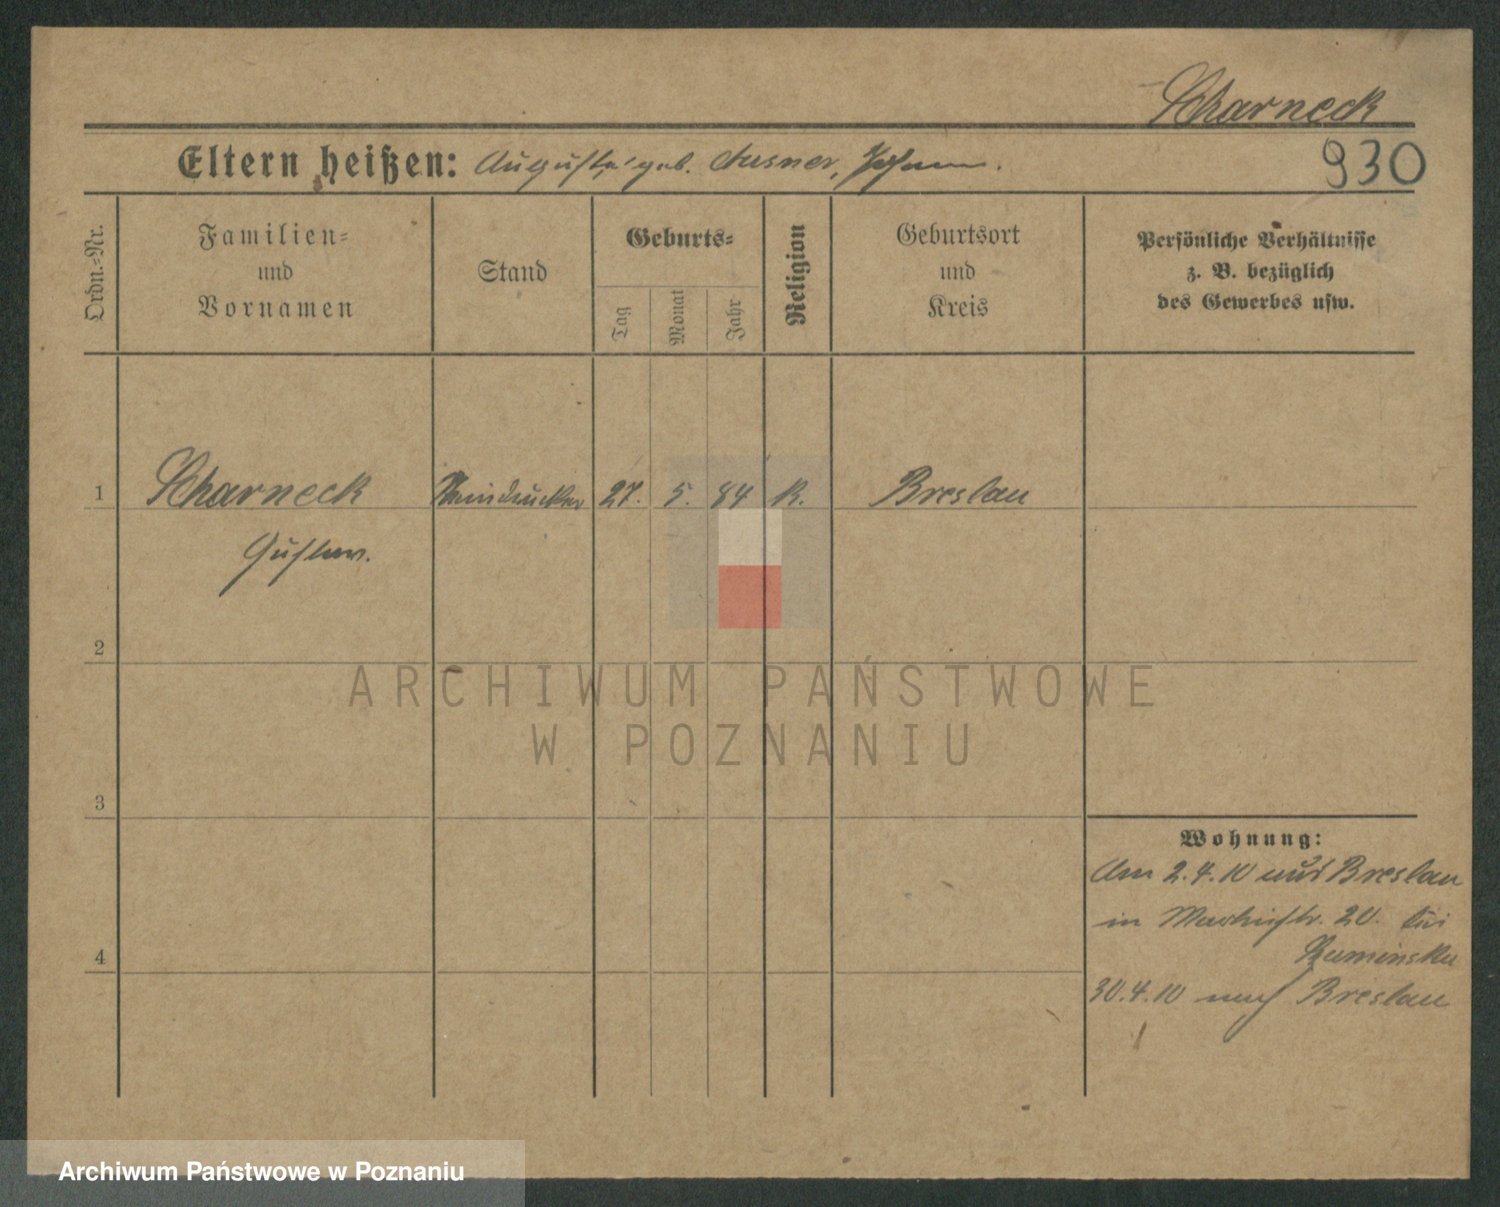 Scharneck
Eltern heißen: Auguste geb. Ausner, Johann.
930
Ordn.-Nr.
Familien-
und
Vornamen
Stand
Geburts-
Tag
Monat
Jahr
Religion
Geburtsort
und
Kreis
Persönliche Verhältnisse
z. B. bezüglich
des Gewerbes usw.
1 Scharneck Steindrucker 27. 5. 84 K. Breslau
Gustav.
2
ARCHIWUM PAŃSTWOWE
W POZNANIU
3
Wohnung:
Am 2.4.10 aus Breslau
in 20. bei
Kaminska
4
30.4.10 nach Breslau
Archiwum Państwowe w Poznaniu